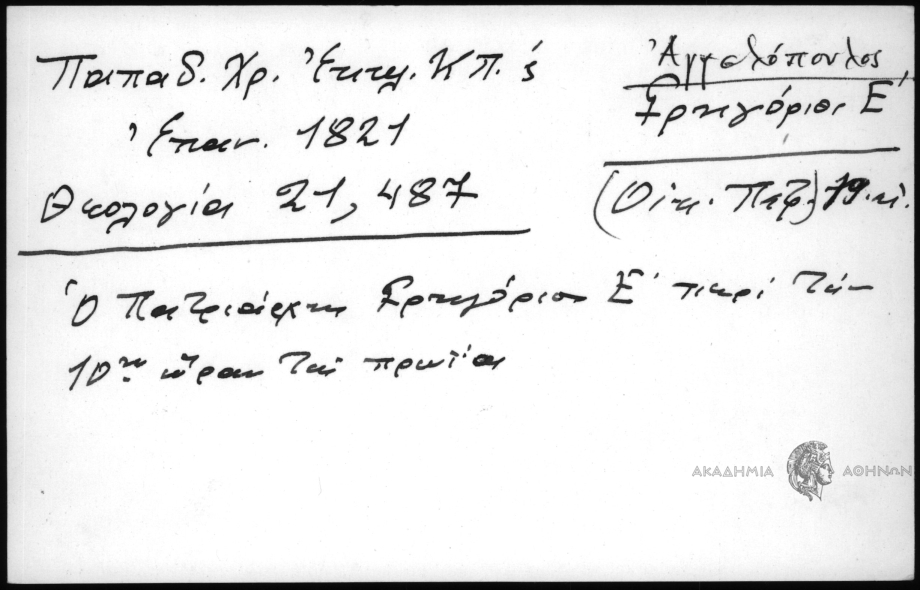 Παπαδ. Χρ. Ἐκκλ. ΚΠ. ἐ
Ἐπαν. 1821
Θεολογία 21, 487
Ἀγγελόπουλος
Γρηγόριος Ε΄
(Οἰκ. Πατρ.) 19. αἰ.
Ὁ Πατριάρχης Γρηγόριος Ε΄ περί τήν
10ην ὥραν τῆς πρωΐας
ΑΚΑΔΗΜΙΑ ΑΘΗΝΩΝ